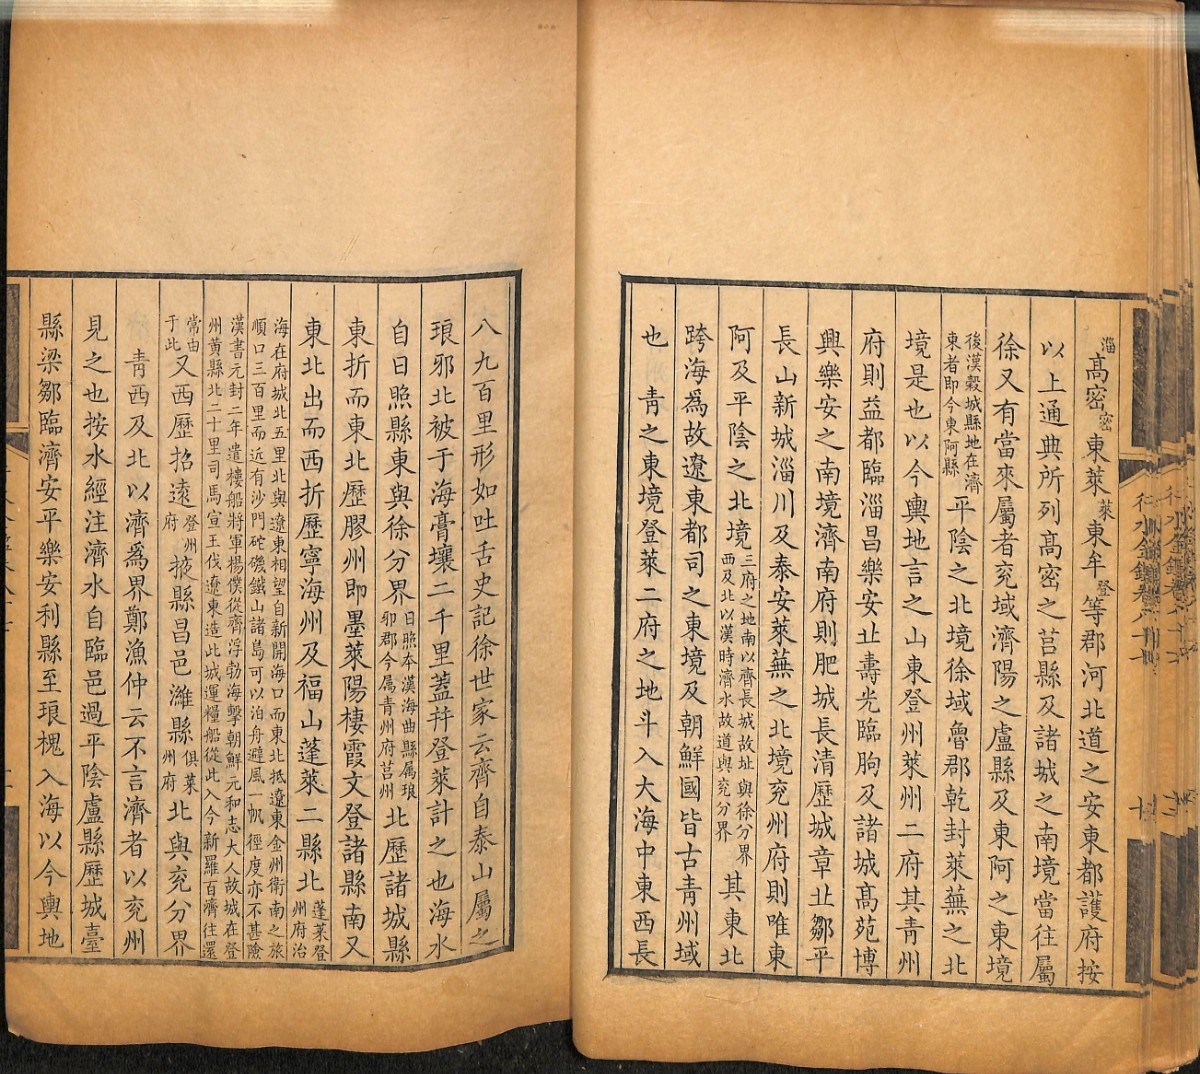 淄高密密東萊萊東牟登等郡河北道之安東都護府按
以上通典所列高密之莒縣及諸城之南境當往屬
徐又有當來屬者兖域濟陽之盧縣及東阿之東境
後漢穀城縣地在濟東者即今東阿縣平陰之北境徐域魯郡乾封萊蕪之北
境是也以今輿地言之山東登州萊州二府其青州
府則益都臨淄昌樂安丠壽光臨朐及諸城高苑博
興樂安之南境濟南府則肥城長清歷城章丠鄒平
長山新城淄川及泰安萊蕪之北境兖州府則唯東
阿及平陰之北境三府之地南以齊長城故址與徐分界西及北以漢時濟水故道與兖分界其東北
跨海爲故遼東都司之東境及朝鮮國皆古青州域
也 青之東境登萊二府之地斗入大海中東西長
八九百里形如吐舌史記徐世家云齊自泰山屬之
琅邪北被于海膏壤二千里蓋并登萊計之也海水
自日照縣東與徐分界日照本漢海曲縣属琅邪郡今属青州府莒州北歷諸城縣
東折而東北歷膠州即墨萊陽棲霞文登諸縣南又
東北出而西折歷寧海州及福山蓬萊二縣北蓬萊登州府治
海在府城北五里北與遼東相望自新開海口而東北抵遼東金州衛南之旅順口三百里而近有沙門砣磯鐵山諸島可以泊舟避風一帆徑度亦不甚險
漢書元封二年遣樓船將軍楊僕從齊浮勃海擊朝鮮元和志大人故城在登州黄縣北二十里司馬宣王伐遼東造此城運糧船從此入今新羅百濟往還
常由于此又西歷招遠登州府掖縣昌邑濰縣俱萊州府北與兖分界
青西及北以濟爲界鄭漁仲云不言濟者以兖州
見之也按水經注濟水自臨邑過平陰盧縣歷城臺
縣梁鄒臨濟安平樂安利縣至琅槐入海以今輿地
行水金鑑卷